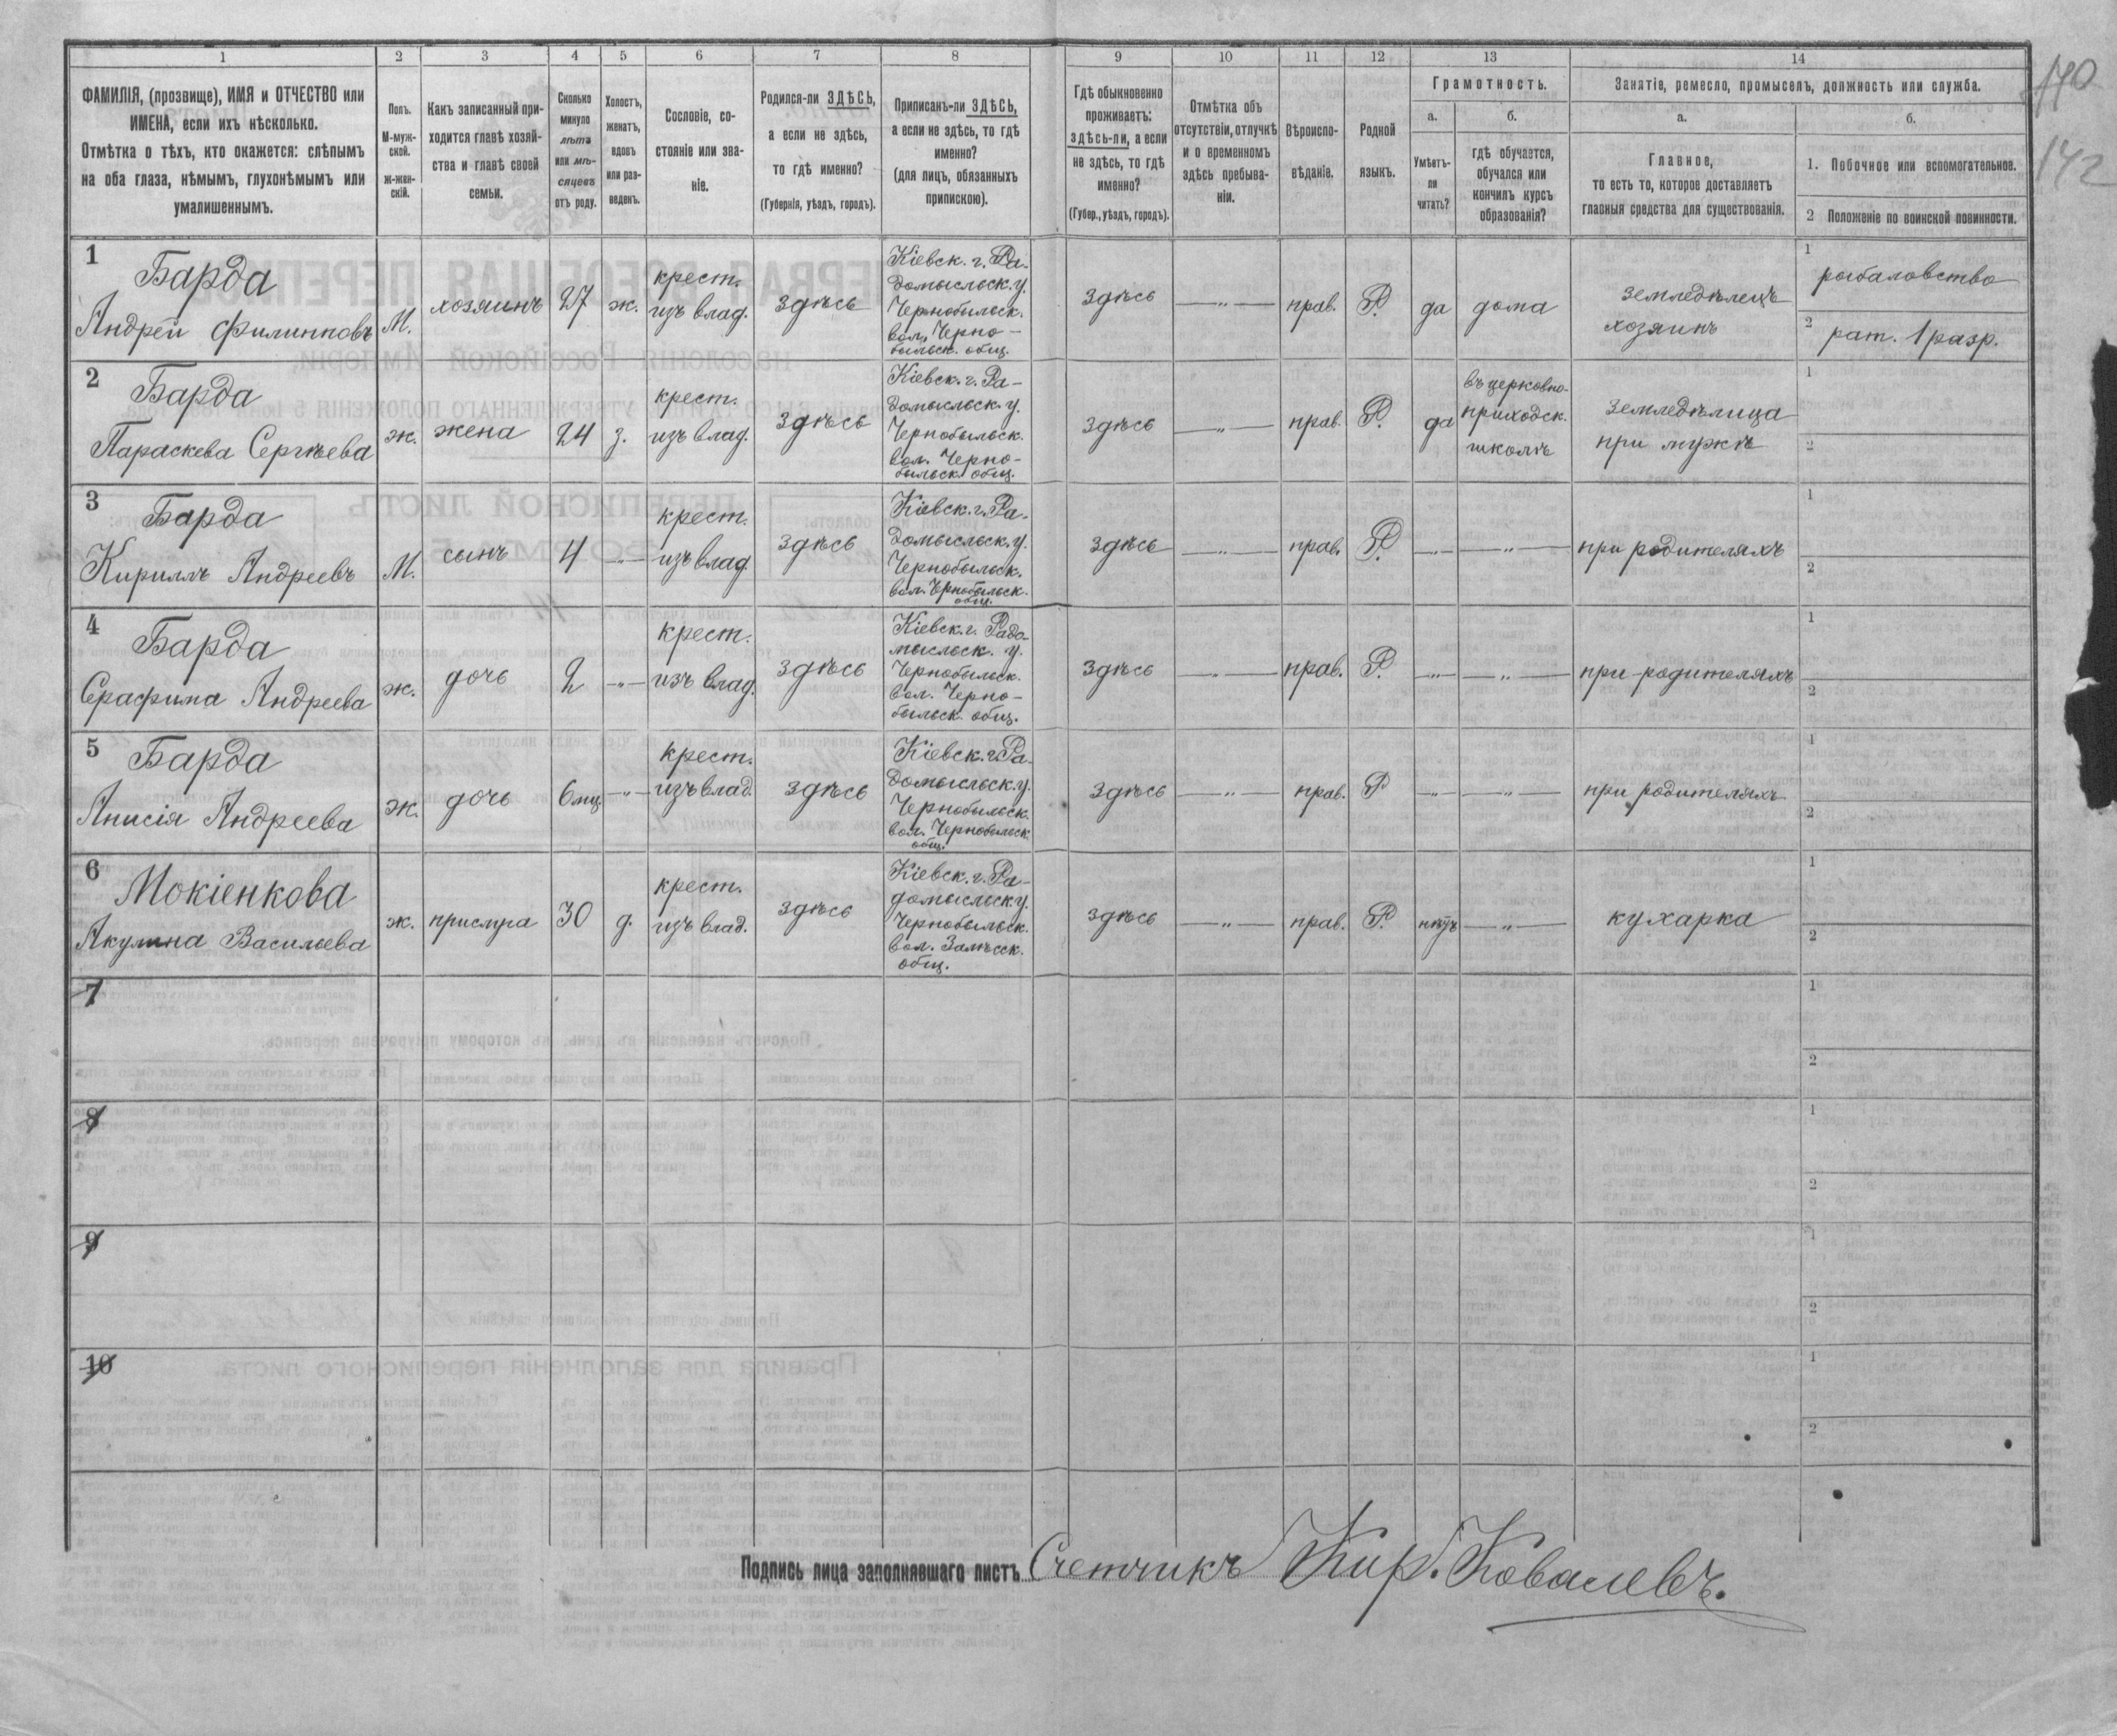 1 2 3 4 5 6 7 8 9 10 11 12 13 14
ФАМИЛІЯ, (прозвище), ИМЯ и ОТЧЕСТВО или
ИМЕНА, если ихъ нѣсколько.
Отмѣтка о тѣхъ, кто окажется: слѣпымъ
на оба глаза, нѣмымъ, глухонѣмымъ или
умалишеннымъ.
Полъ.
М-муж-
ской.
Ж-жен-
скій.
Какъ записанный при-
ходится главѣ хозяй-
ства и главѣ своей
семьи.
Сколько
минуло
лѣтъ
или мѣ-
сяцевъ
отъ роду.
Холостъ,
женатъ,
вдовъ
или раз-
веденъ.
Сословіе, со-
стояніе или зва-
ніе.
Родился-ли ЗДѢСЬ,
а если не здѣсь,
то гдѣ именно?
(Губернія, уѣздъ, городъ).
Приписанъ-ли ЗДѢСЬ,
а если не здѣсь, то гдѣ
именно?
(для лицъ, обязанныхъ
припискою).
Гдѣ обыкновенно
проживаетъ:
здѣсь-ли, а если
не здѣсь, то гдѣ
именно?
(Губер., уѣздъ, городъ).
Отмѣтка объ
отсутствіи, отлучкѣ
и о временномъ
здѣсь пребыва-
ніи.
Вѣроиспо-
вѣданіе.
Родной
языкъ.
Грамотность.
а.
Умѣетъ-
ли
читать?
б.
гдѣ обучается,
обучался или
кончилъ курсъ
образованія?
Занятіе, ремесло, промыселъ, должность или служба.
а.
Главное,
то есть то, которое доставляетъ
главныя средства для существованія.
б.
1. Побочное или вспомогательное.
2 Положеніе по воинской повинности.
140
142
1
Барда
Андрей Филипповъ
М.
хозяинъ
27
ж.
крест.
изъ влад.
здѣсь
Кіевск. г. Ра-
домысльск. у.
Чернобыльск.
вол. Черно-
быльск. общ.
здѣсь
—"—
прав.
Р.
да
дома
земледѣлецъ
хозяинъ
1
рыбаловство
2
рат. 1 разр.
2
Барда
Параскева Сергѣева
ж.
жена
24
з.
крест.
изъ влад.
здѣсь
Кіевск. г. Ра-
домысльск. у.
Чернобыльск.
вол. Черно-
быльск. общ.
здѣсь
—"—
прав.
Р.
да
въ церковно-
приходск.
школѣ
земледѣлица
при мужѣ
1
2
3
Барда
Кириллъ Андреевъ
М.
сынъ
4
—"—
крест.
изъ влад.
здѣсь
Кіевск. г. Ра-
домысльск. у.
Чернобыльск.
вол. Чернобыльск.
общ.
здѣсь
—"—
прав.
Р.
—"—
—"—
при родителяхъ
1
2
4
Барда
Серафима Андреева
ж.
дочь
2
—"—
крест.
изъ влад.
здѣсь
Кіевск. г. Радо-
мысльск. у.
Чернобыльск.
вол. Черно-
быльск. общ.
здѣсь
—"—
прав.
Р.
—"—
—"—
при родителяхъ
1
2
5
Барда
Анисія Андреева
ж.
дочь
6 мц.
—"—
крест.
изъ влад.
здѣсь
Кіевск. г. Ра-
домысльск. у.
Чернобыльск.
вол. Чернобыльск.
общ.
здѣсь
—"—
прав.
Р
—"—
—"—
при родителяхъ
1
2
6
Мокіенкова
Акулина Васильева
ж.
прислуга
30
д.
крест.
изъ влад.
здѣсь
Кіевск. г. Ра-
домысльск. у.
Чернобыльск.
вол. Залѣсск.
общ.
здѣсь
—"—
прав.
Р.
нѣтъ
—"—
кухарка
1
2
7
1
2
8
1
2
9
1
2
10
1
2
Подпись лица заполнявшаго листъ Счетчикъ Кир. Ковалевъ.